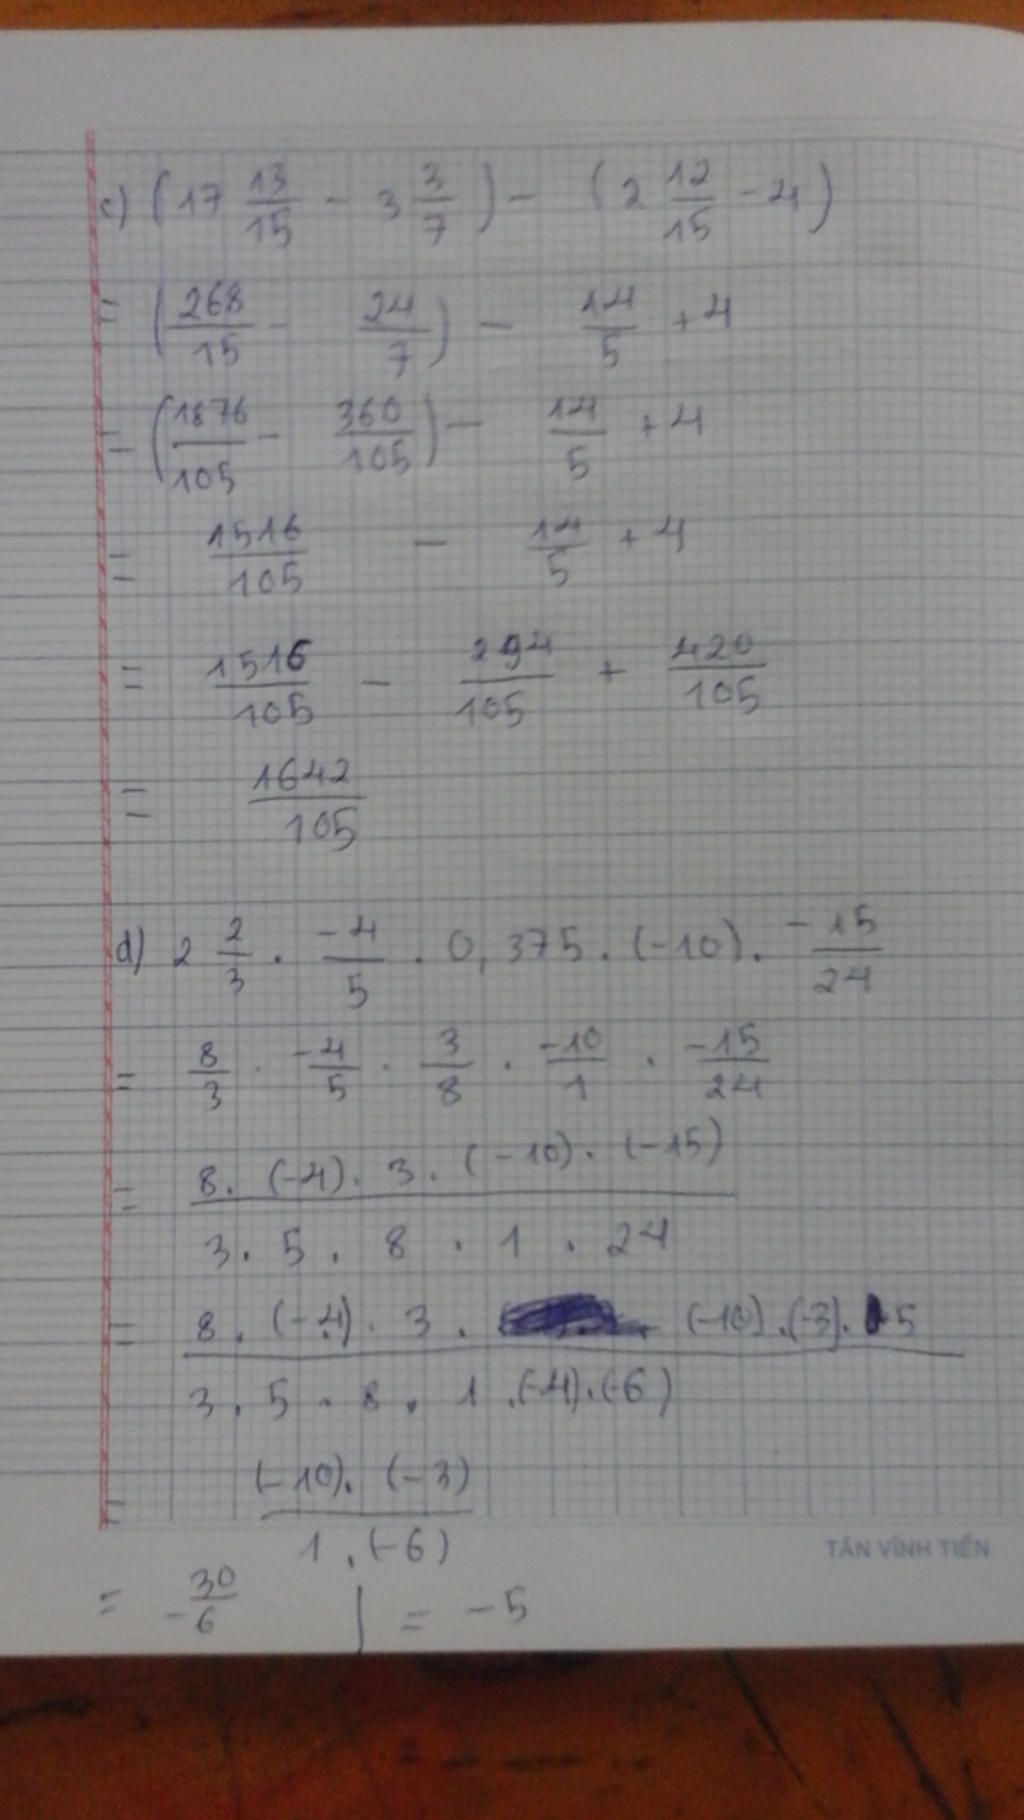 c) (17 13/15 - 3 3/7) - (2 12/15 - 4)
= (268/15 - 24/7) - 14/5 + 4
= (1876/105 - 360/105) - 14/5 + 4
= 1516/105 - 14/5 + 4
= 1516/105 - 294/105 + 420/105
= 1642/105
d) 2 2/3 . -4/5 . 0,375 . (-10) . -15/24
= 8/3 . -4/5 . 3/8 . -10/1 . -15/24
= 8. (-4). 3. (-10). (-15) / 3. 5. 8. 1. 24
= 8. (-4). 3. (-10). (-3). 5 / 3. 5. 8. 1. (-4). (-6)
= (-10). (-3) / 1. (-6)
TÂN VĨNH TIẾN
= 30/-6 | = -5